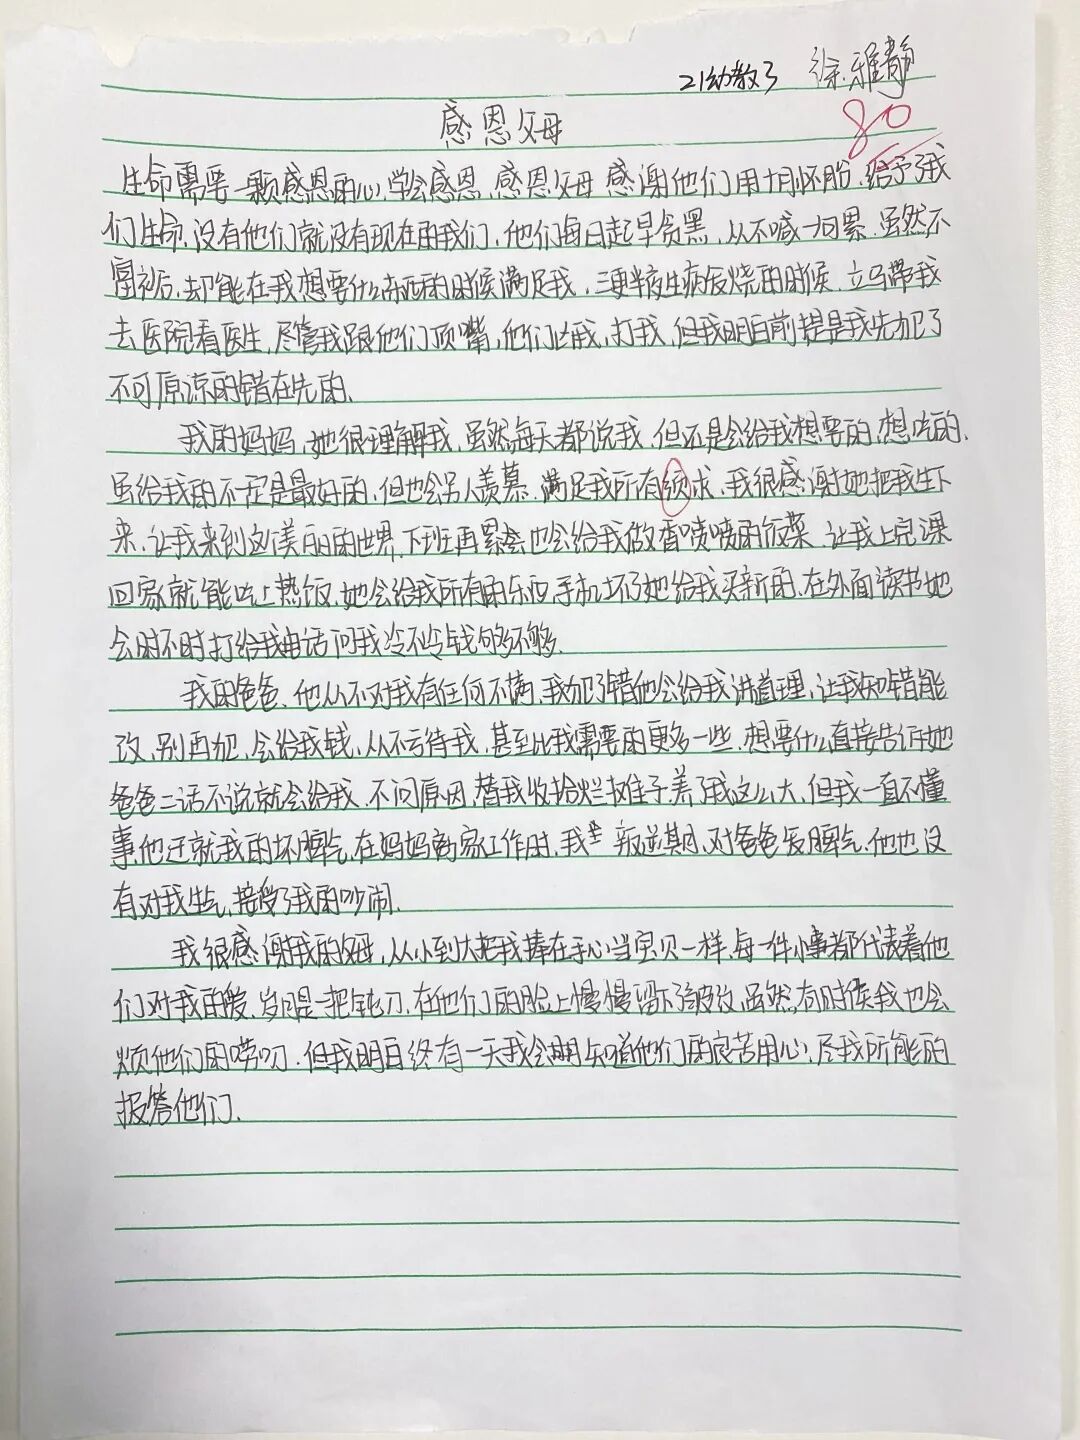 21幼教3 徐雅静
80
感恩父母
生命需要一颗感恩的心,学会感恩,感恩父母 感谢他们用十月怀胎,给予我
们生命,没有他们就没有现在的我们,他们每日起早贪黑,从不喊一回累.虽然不
富裕,却能在我想要什么东西的时候满足我,三更半夜生病发烧的时候,立马带我
去医院看医生,尽管我跟他们顶嘴,他们凶我,打我,但我明白前提是我先犯了
不可原谅的错在先的.
我的妈妈,她很理解我,虽然每天都说我,但还是会给我想要的,想吃的,
虽给我的不一定是最好的,但也会另人羡慕,满足我所有须求,我很感谢她把我生下
来,让我来到这美丽的世界,下班再累也会给我做香喷喷的饭菜,让我上完课
回家就能吃上热饭,她会给我所有的东西,手机坏了她给我买新的,在外面读书她
会时不时打给我电话问我冷不冷钱够不够.
我的爸爸,他从不对我有任何不满,我犯了错他会给我讲道理,让我知错能
改,别再犯,会给我钱,从不亏待我,甚至比我需要的更多一些,想要什么直接告诉他
爸爸二话不说就会给我,不问原因,替我收拾烂摊子,养了我这么大,但我一直不懂
事,他迁就我的坏脾气,在妈妈离家工作时,我 叛逆期,对爸爸发脾气,他也没
有对我生气,接受了我的吵闹.
我很感谢我的父母,从小到大把我捧在手心当宝贝一样,每一件小事都代表着他
们对我的爱,岁月是一把钝刀,在他们的脸上慢慢留下了皱纹,虽然,有时候我也会
烦他们的唠叨,但我明白终有一天我会明知道他们的良苦用心,尽我所能的
报答他们.